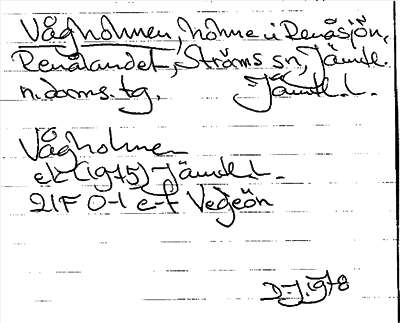 Vågholmen, holme i Renåsjön,
Renålandet, Ströms sn, Jämtl.
n. doms. tg. Jämtl. l.
Vågholmen
ek (1975) Jämtl. l.
21F 0-1 e-f Vegeön
D-J. 1978